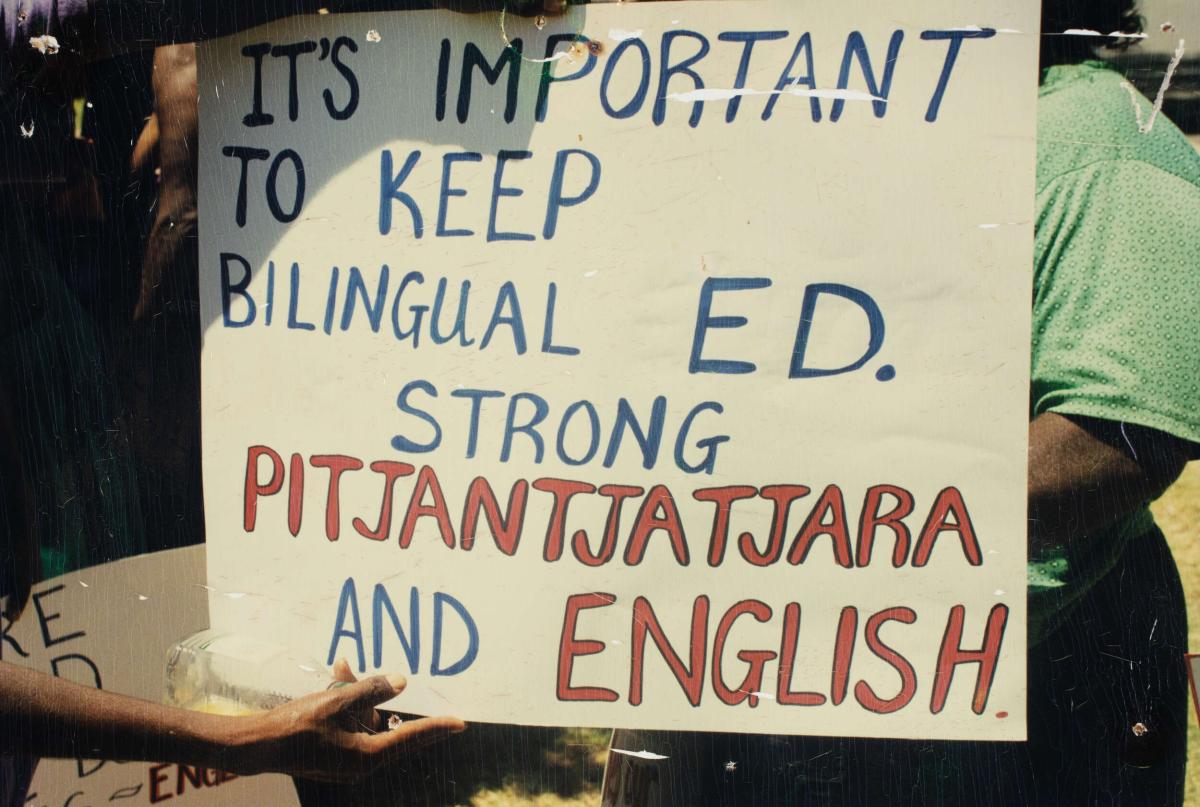 IT'S IMPORTANT
TO KEEP
BILINGUAL ED.
STRONG
PITJANTJATJARA
AND ENGLISH.